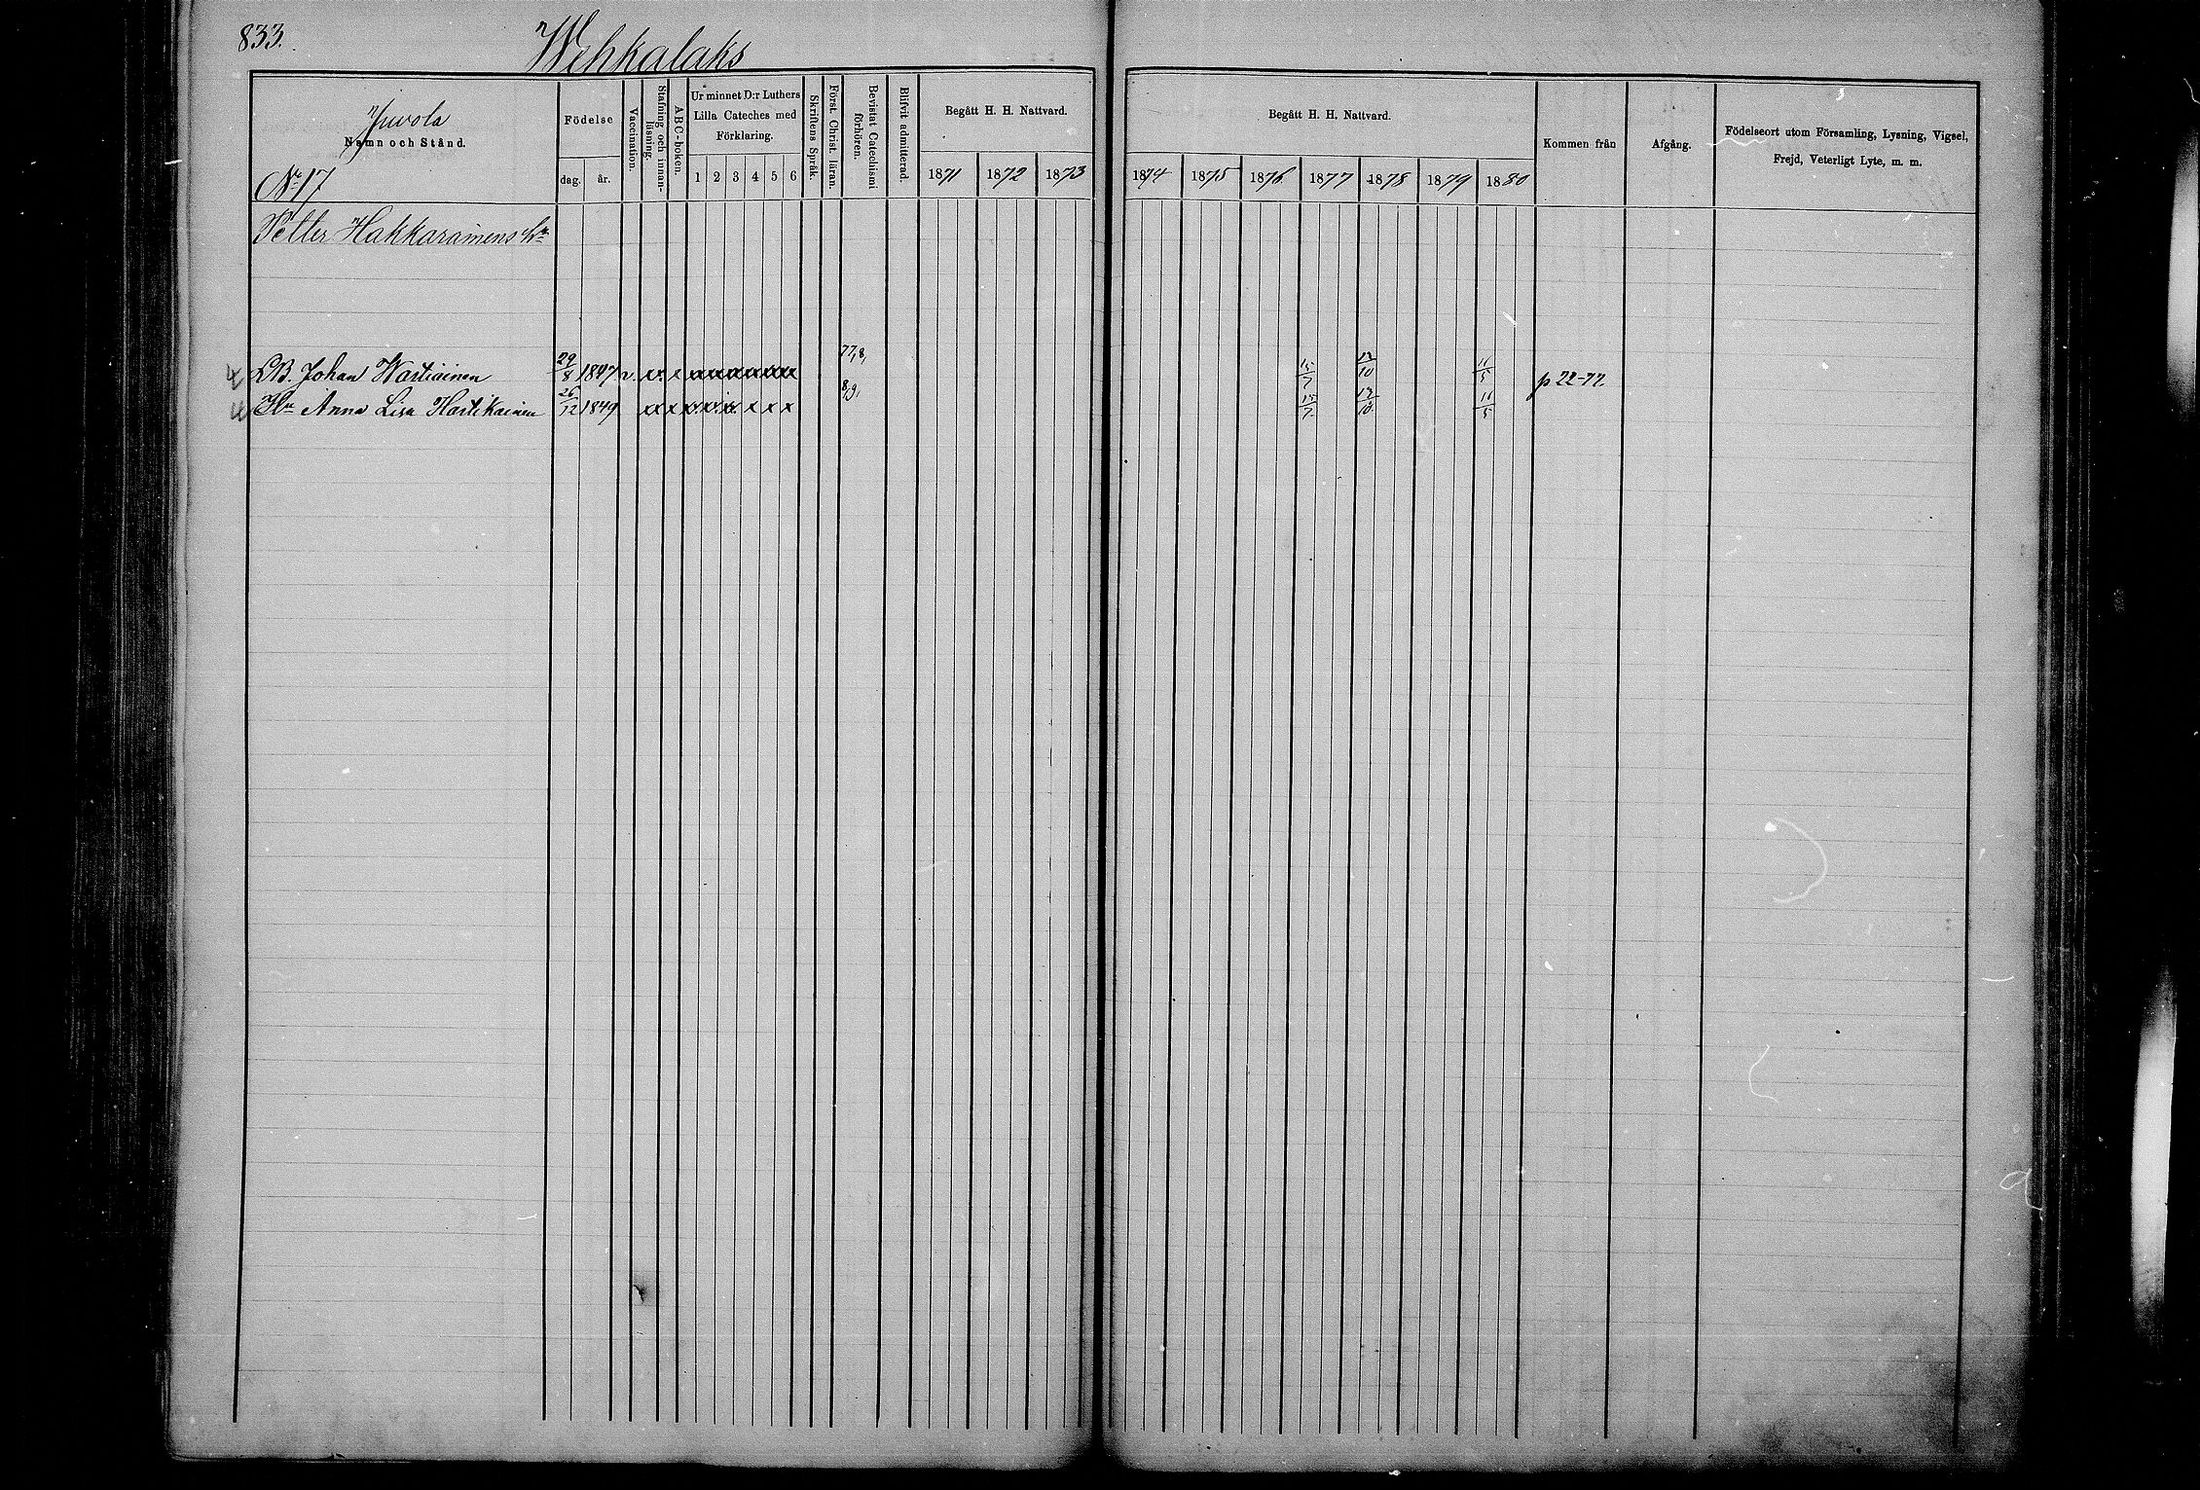 833.
Wehkalaks
Juvola
Namn och Stånd.
No 17
Födelse
dag. år.
Vaccination.
Stafning och innan-
läsning.
ABC-boken.
Ur minnet D:r Luthers
Lilla Cateches med
Förklaring.
1 2 3 4 5 6
Skriftens Språk.
Först. Christ. läran.
Bevistat Catechismi
förhören.
Blifvit admitterad.
Begått H. H. Nattvard.
1871 1872 1873
Begått H. H. Nattvard.
1874 1875 1876 1877 1878 1879 1880
Kommen från
Afgång.
Födelseort utom Församling, Lysning, Vigsel,
Frejd, Veterligt Lyte, m. m.
Petter Hakkarainens
Johan Wartiainen 29/8 1847 v. x x x x x x x x 77,8, 15/7 12/10 11/5 p 22-77.
Hu Anna Lisa Hartikainen 26/12 1849 x x x x x x x x 8,9, 15/7 12/10 11/5